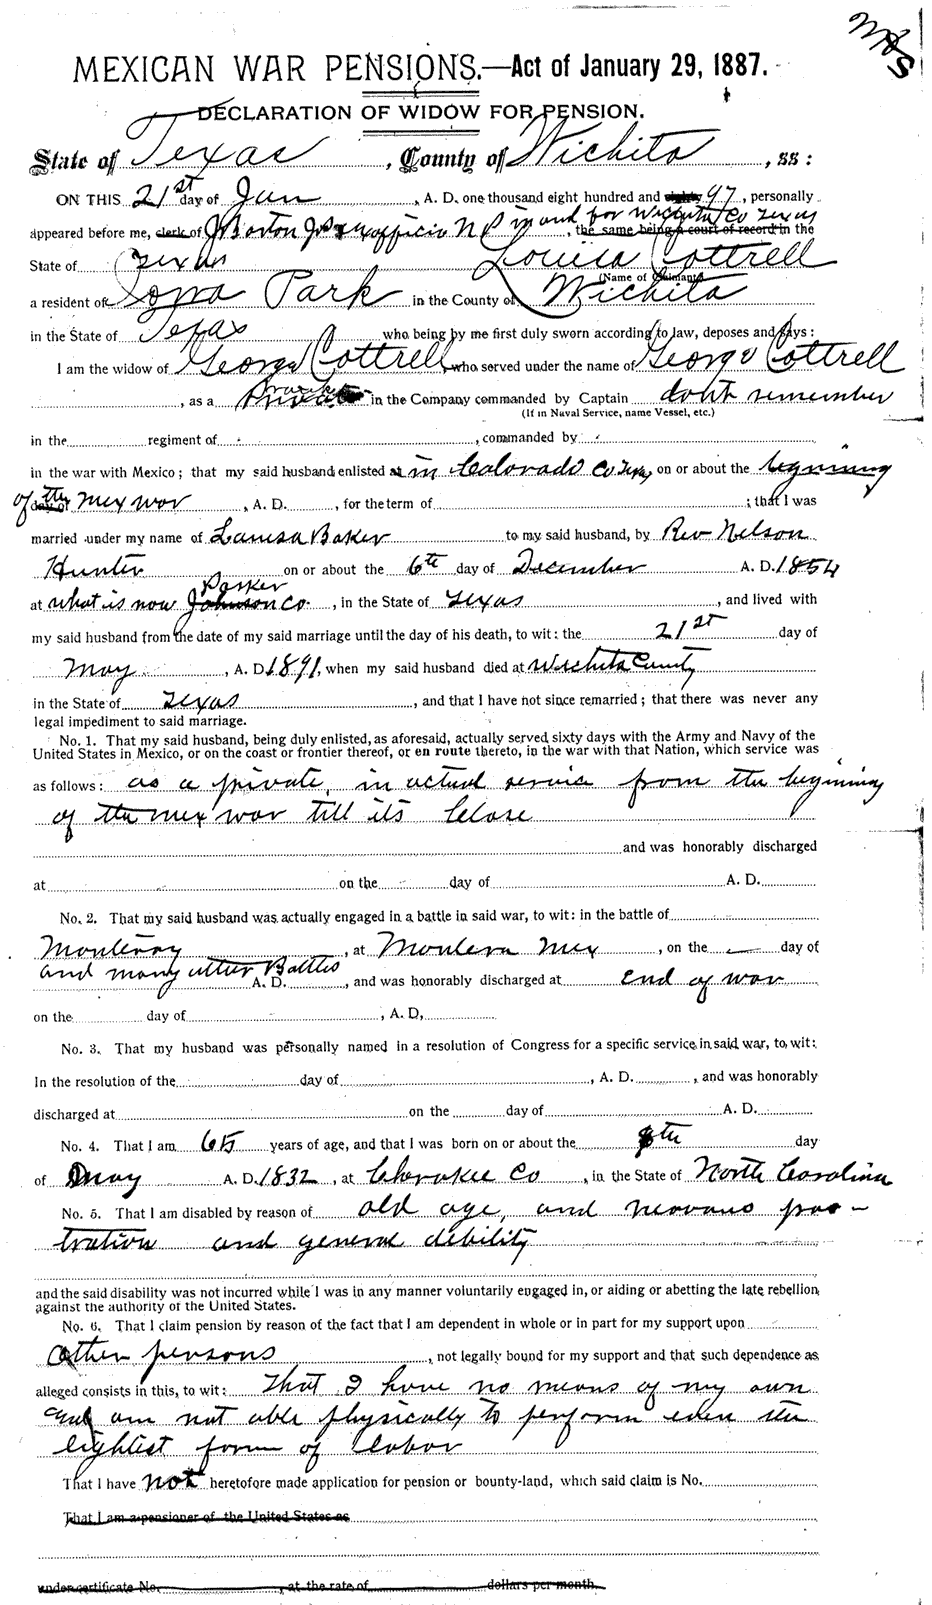 MEXICAN WAR PENSIONS.—Act of January 29, 1887.
DECLARATION OF WIDOW FOR PENSION.
State of Texas, County of Wichita, ss:
ON THIS 21st day of Jan, A. D. one thousand eight hundred and eighty 97, personally
in and for Wichita Co Texas
appeared before me, clerk of J Barton J.P. & exofficio N P, the same being a court of record in the
State of Texas Louisa Cottrell
(Name of Claimant)
a resident of Iowa Park in the County of Wichita
in the State of Texas who being by me first duly sworn according to law, deposes and says:
I am the widow of George Cottrell, who served under the name of George Cottrell
, as a Private in the Company commanded by Captain dont remember
(If in Naval Service, name Vessel, etc.)
in the regiment of , commanded by
in the war with Mexico; that my said husband enlisted at in Colorado Co Texas, on or about the begining
of the day of mex war, A. D. , for the term of ; that I was
married under my name of Louisa Baker to my said husband, by Rev Nelson
Hunter on or about the 6th day of December A. D. 1854
Parker
at what is now Johnson Co., in the State of Texas, and lived with
my said husband from the date of my said marriage until the day of his death, to wit: the 21st day of
May, A. D. 1891, when my said husband died at Wichita County
in the State of Texas, and that I have not since remarried; that there was never any
legal impediment to said marriage.
No. 1. That my said husband, being duly enlisted, as aforesaid, actually served sixty days with the Army and Navy of the
United States in Mexico, or on the coast or frontier thereof, or en route thereto, in the war with that Nation, which service was
as follows: as a private, in actual service from the begining
of the mex war till its Close
and was honorably discharged
at on the day of A. D.
No. 2. That my said husband was actually engaged in a battle in said war, to wit: in the battle of
Monterray, at Montera Mex, on the — day of
and many other Battles A. D. , and was honorably discharged at end of war
on the day of , A. D,
No. 3. That my husband was personally named in a resolution of Congress for a specific service in said war, to wit:
In the resolution of the day of , A. D. , and was honorably
discharged at on the day of A. D.
No. 4. That I am 65 years of age, and that I was born on or about the 8th day
of May A. D. 1832, at Cherokee Co, in the State of North Carolina
No. 5. That I am disabled by reason of old age, and nervous pros-
tration and general debility
and the said disability was not incurred while I was in any manner voluntarily engaged in, or aiding or abetting the late rebellion
against the authority of the United States.
No. 6. That I claim pension by reason of the fact that I am dependent in whole or in part for my support upon
other persons, not legally bound for my support and that such dependence as
alleged consists in this, to wit: that I have no means of my own
and am not able physically to perform even the
lightest form of labor
That I have not heretofore made application for pension or bounty-land, which said claim is No.
That I am a pensioner of the United States as
under certificate No. , at the rate of dollars per month.